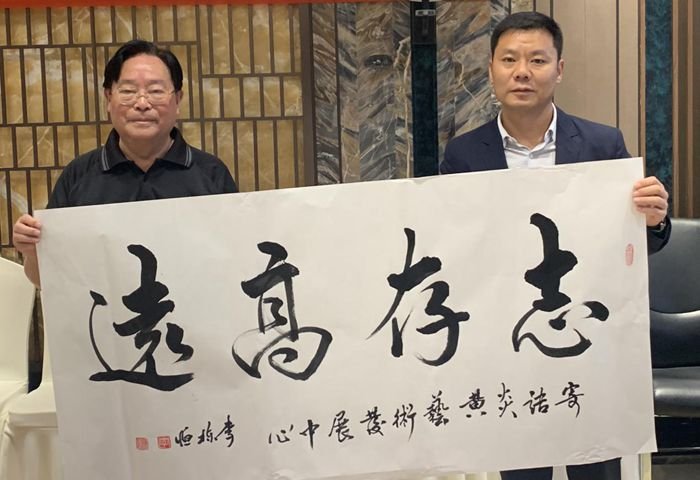 志存高遠
寄語炎黄藝術發展中心
李栋恒